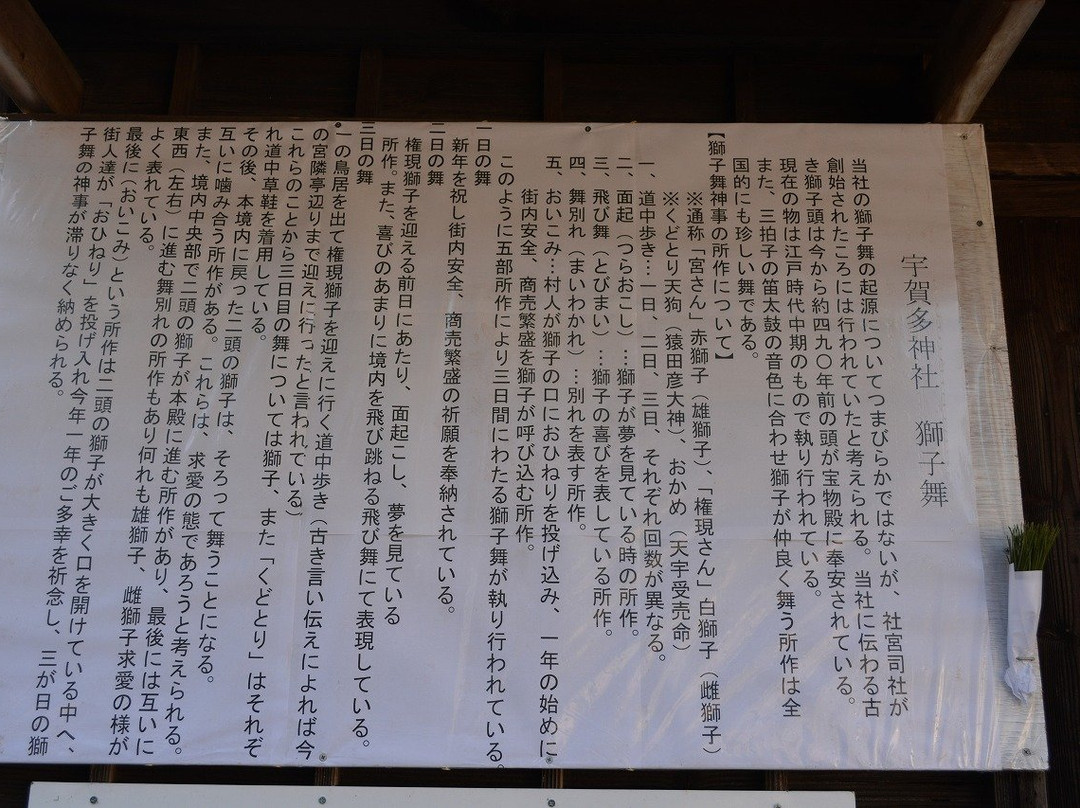 宇賀多神社　獅子舞
当社の獅子舞の起源についてつまびらかではないが、社宮司社が
創始されたころには行われていたと考えられる。当社に伝わる古
き獅子頭は今から約四九〇年前の頭が宝物殿に奉安されている。
現在の物は江戸時代中期のもので執り行われている。
また、三拍子の笛太鼓の音色に合わせ獅子が仲良く舞う所作は全
国的にも珍しい舞である。
【獅子舞神事の所作について】
※通称「宮さん」赤獅子（雄獅子）、「権現さん」白獅子（雌獅子）
※くどとり天狗（猿田彦大神）、おかめ（天宇受売命）
一、道中歩き…一日、二日、三日、それぞれ回数が異なる。
二、面起（つらおこし）…獅子が夢を見ている時の所作。
三、飛び舞（とびまい）…獅子の喜びを表している所作。
四、舞別（まいわかれ）…別れを表す所作。
五、おいこみ…村人が獅子の口におひねりを投げ込み、一年の始めに
街内安全、商売繁盛を獅子が呼び込む所作。
このように五部所作により三日間にわたる獅子舞が執り行われている。
一日の舞
新年を祝し街内安全、商売繁盛の祈願を奉納されている。
二日の舞
権現獅子を迎える前日にあたり、面起こし、夢を見ている
所作。また、喜びのあまりに境内を飛び跳ねる飛び舞にて表現している。
三日の舞
一の鳥居を出て権現獅子を迎えに行く道中歩き（古き言い伝えによれば今
の宮隣亭辺りまで迎えに行ったと言われている）
これらのことから三日目の舞については獅子、また「くどとり」はそれぞ
れ道中草鞋を着用している。
その後、本境内に戻った二頭の獅子は、そろって舞うことになる。
互いに噛み合う所作がある。これらは、求愛の態であろうと考えられる。
また、境内中央部で二頭の獅子が本殿に進む所作があり、最後には互いに
東西（左右）に進む舞別れの所作もあり何れも雄獅子、雌獅子求愛の様が
よく表れている。
最後に（おいこみ）という所作は二頭の獅子が大きく口を開けている中へ、
街人達が「おひねり」を投げ入れ今年一年のご多幸を祈念し、三が日の獅
子舞の神事が滞りなく納められる。